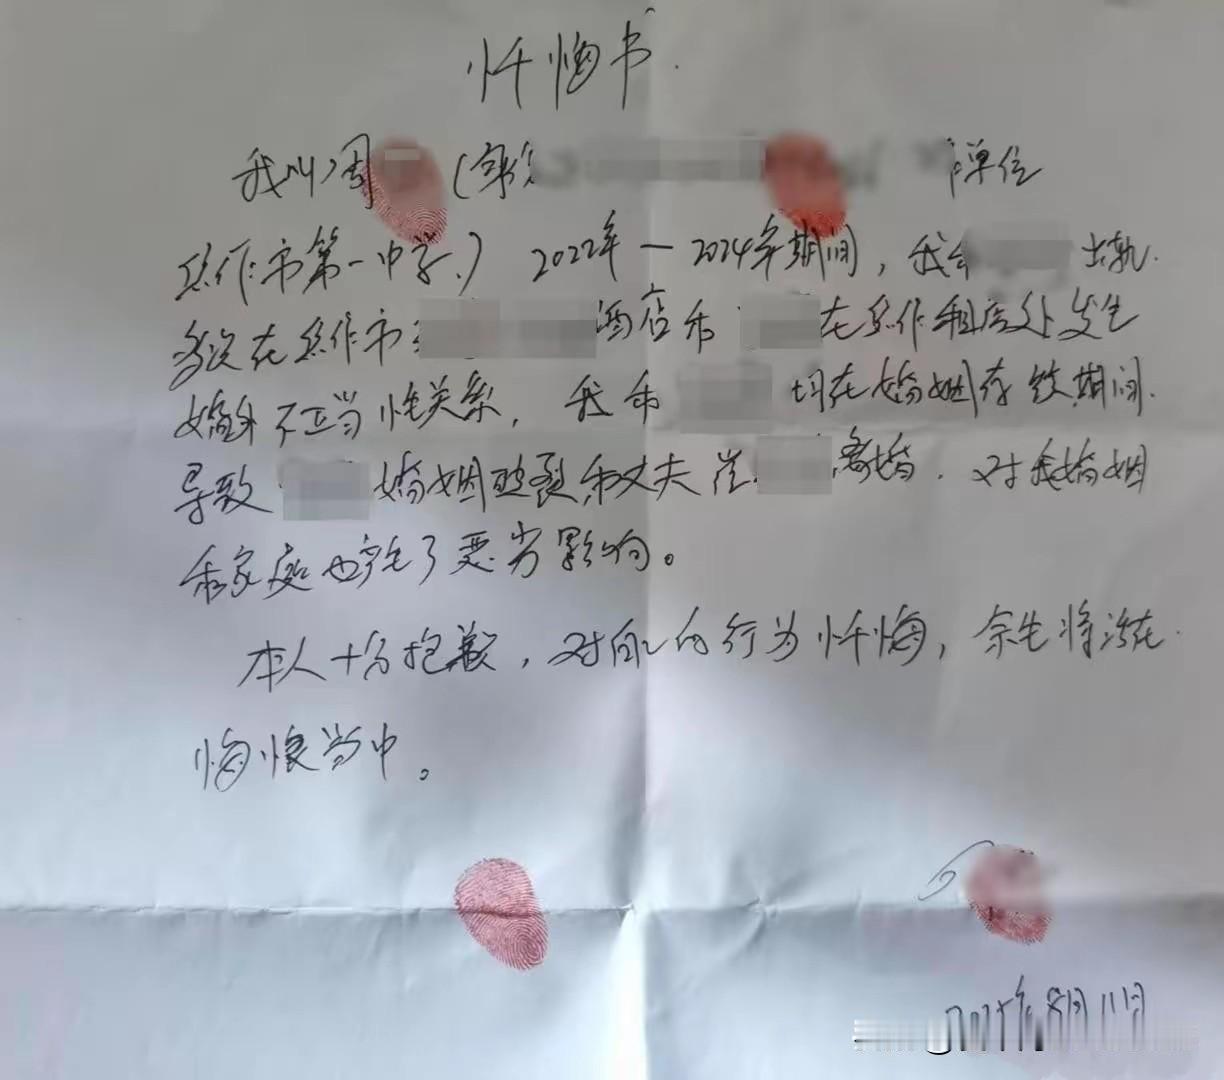 忏悔书
我叫周（身 单位
焦作市第一中学）2022年—2024年期间，我会 出轨.
多次在焦作市 酒店和 在焦作租房处发生
婚外不正当性关系，我和 均在婚姻存续期间.
导致 婚姻破裂和丈夫崔 离婚.对我婚姻
和家庭也产生了恶劣影响。
本人十分抱歉，对自己的行为忏悔，余生将活在
悔恨当中。
8月11日